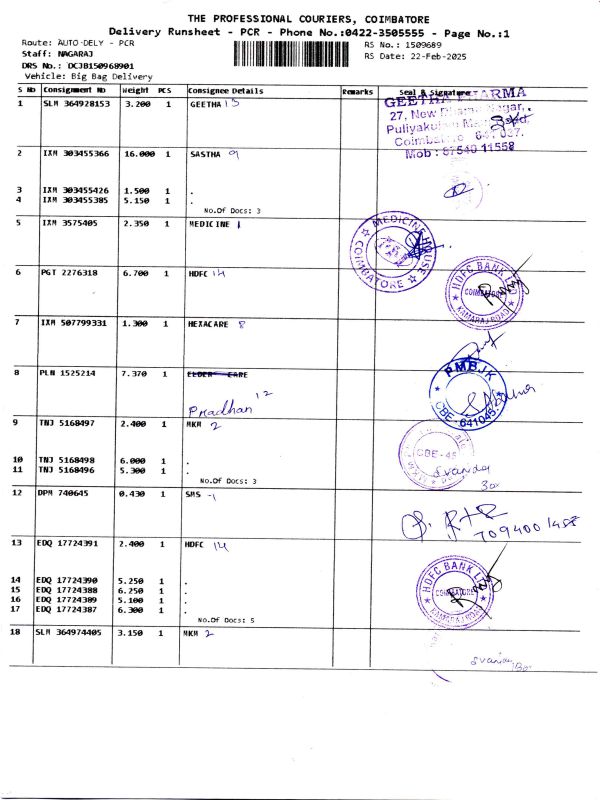 THE PROFESSIONAL COURIERS, COIMBATORE
Delivery Runsheet - PCR - Phone No.:0422-3505555 - Page No.:1
Route: AUTO-DELY - PCR
RS No.: 1509689
Staff: NAGARAJ
RS Date: 22-Feb-2025
DRS No.: DCJB150968901
Vehicle: Big Bag Delivery
S No Consignment No Weight PCS Consignee Details Remarks Seal & Signature
1 SLM 364928153 3.200 1 GEETHA 15
GEETHA PHARMA
27, New Nagar,
Puliyakulam
Coimbatore 641 037.
Mob : 87540 11558
2 IXM 303455366 16.000 1 SASTHA 9
3 IXM 303455426 1.500 1 .
4 IXM 303455385 5.150 1 .
No.Of Docs: 3
5 IXM 3575405 2.350 1 MEDICINE 1
MEDICINE HOUSE
COIMBATORE
6 PGT 2276318 6.700 1 HDFC 14
HDFC BANK LTD
COIMBATORE
KAMARAJ ROAD
7 IXM 507799331 1.300 1 HEXACARE 8
8 PLN 1525214 7.370 1 ELDER CARE
Pradhan 12
PMBJK
CBE-641045
9 TNJ 5168497 2.400 1 MKM 2
10 TNJ 5168498 6.000 1 .
11 TNJ 5168496 5.300 1 .
No.Of Docs: 3
CBE-45
MKM
12 DPM 740645 0.430 1 SMS -1
13 EDQ 17724391 2.400 1 HDFC 14
14 EDQ 17724390 5.250 1 .
15 EDQ 17724388 6.250 1 .
16 EDQ 17724389 5.100 1 .
17 EDQ 17724387 6.300 1 .
No.Of Docs: 5
HDFC BANK LTD
COIMBATORE
KAMARAJ ROAD
18 SLM 364974405 3.150 1 MKM 2